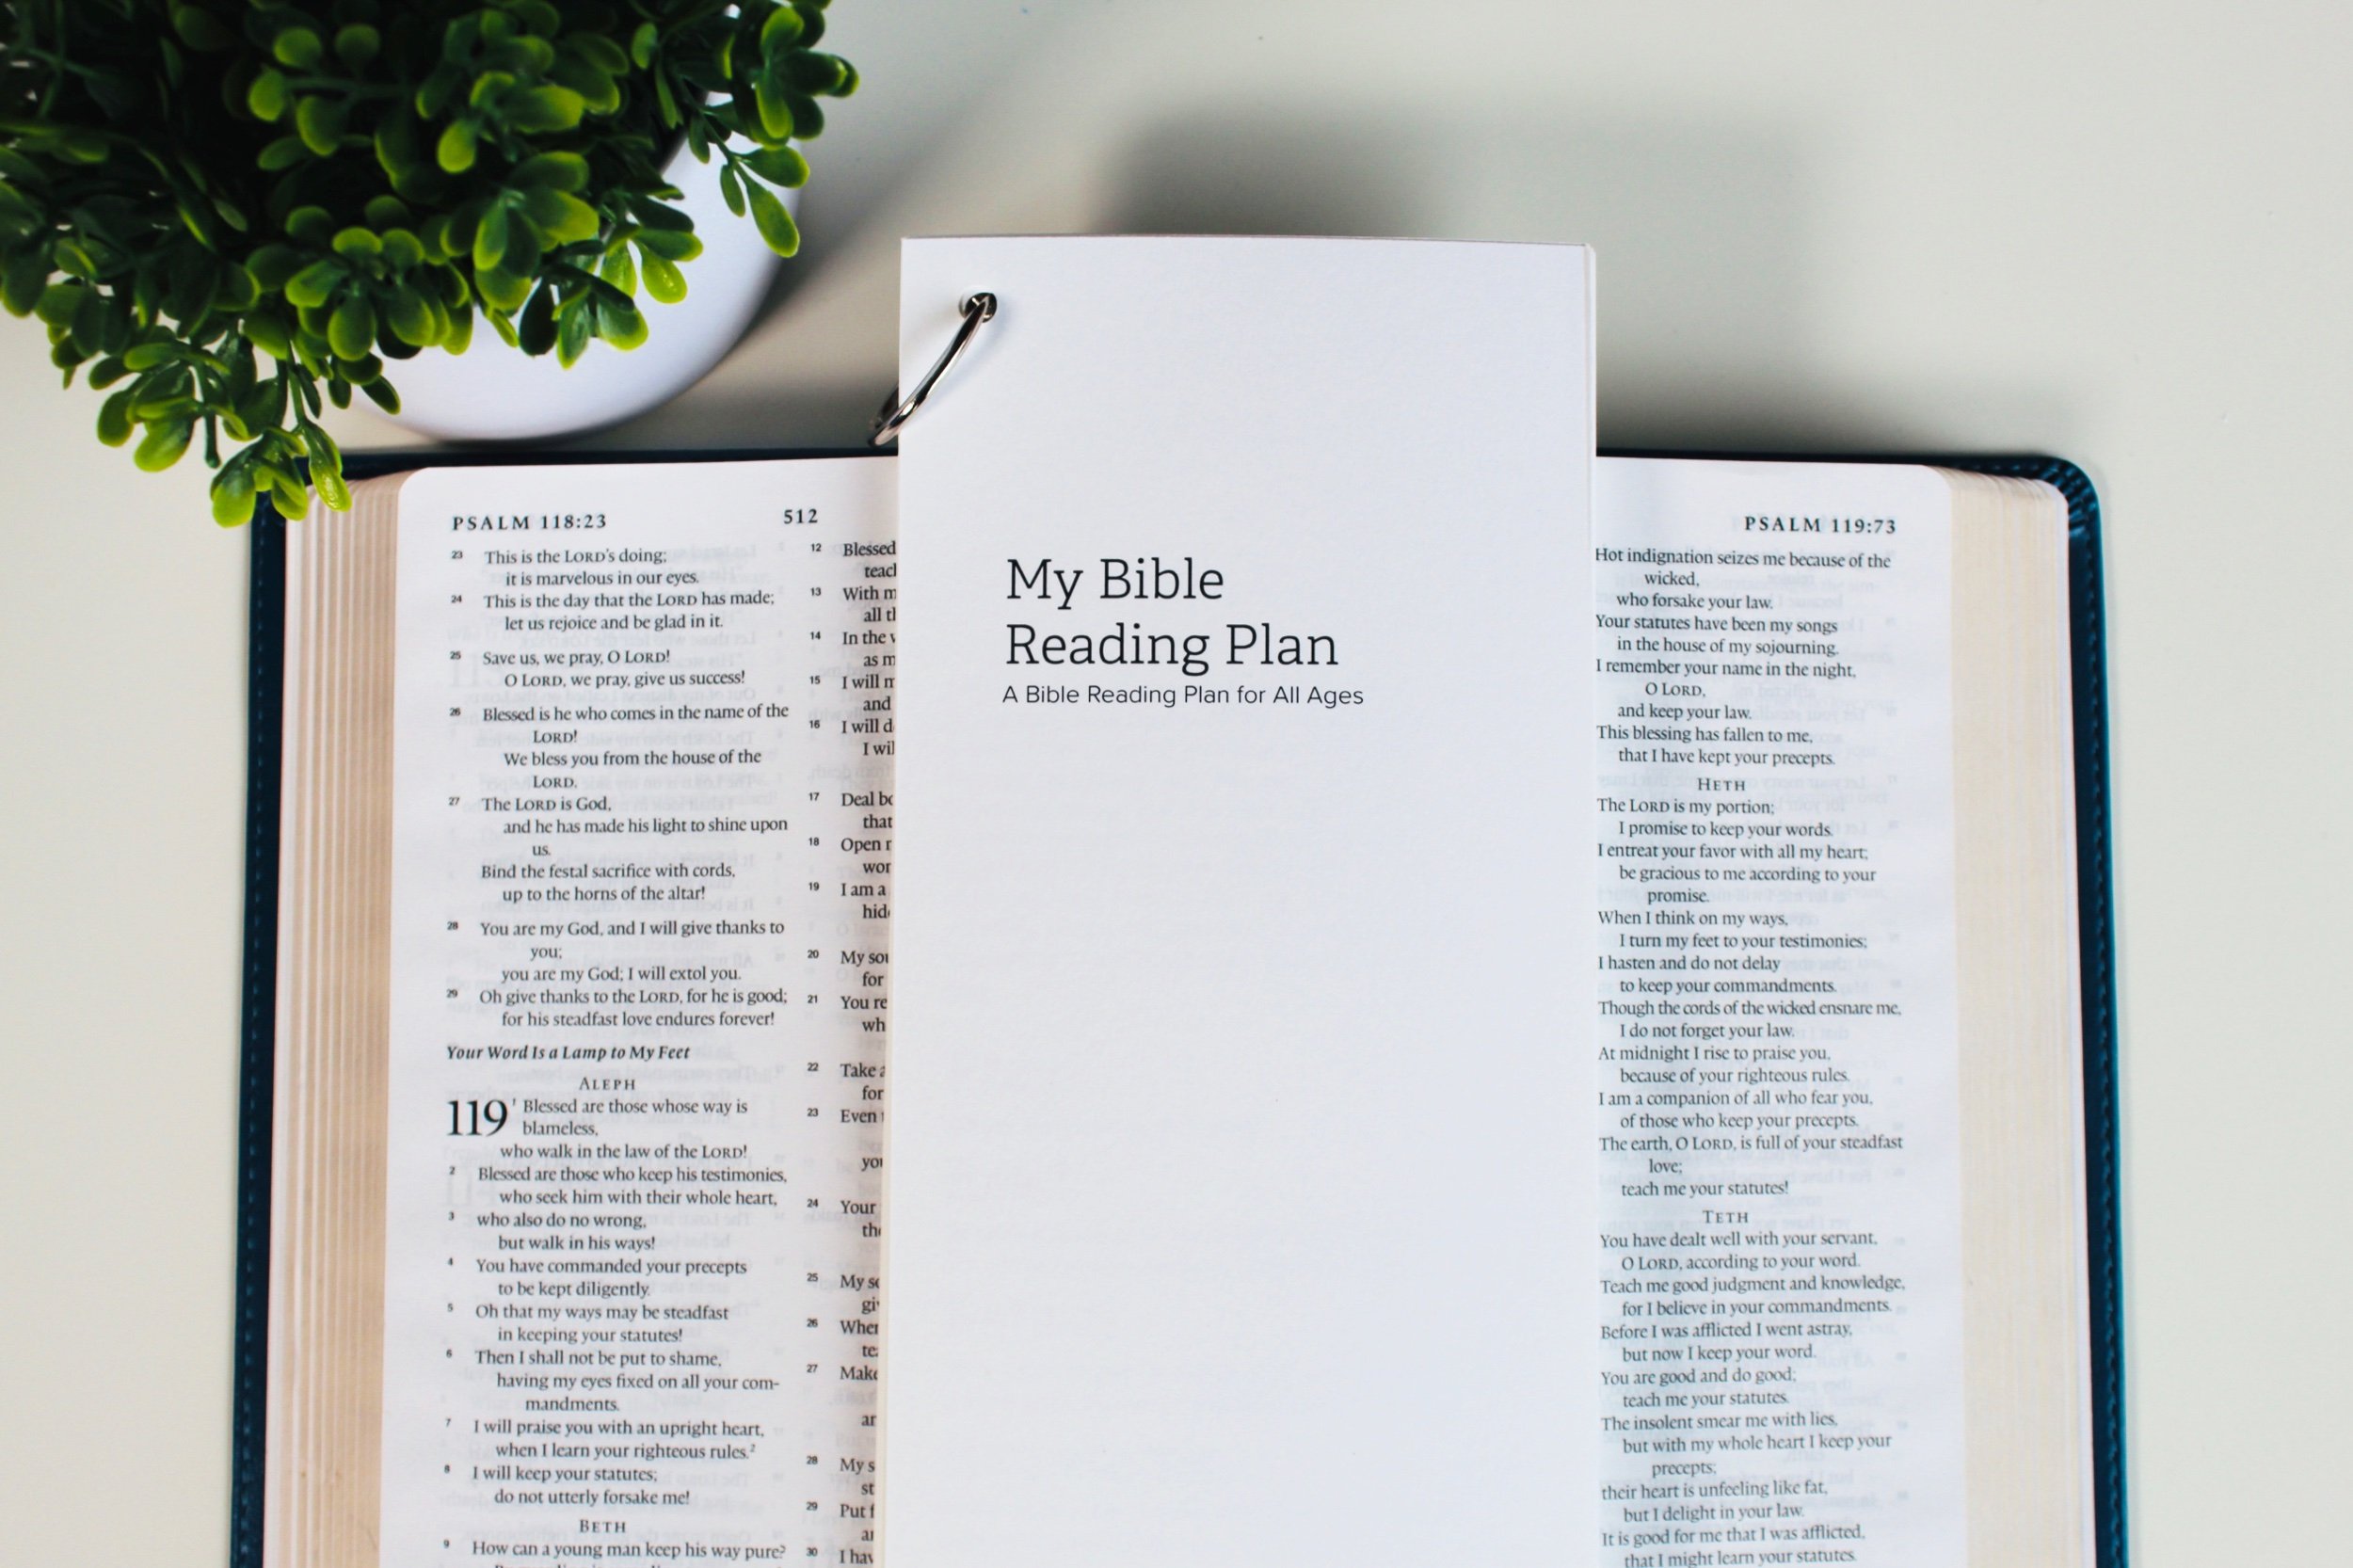 PSALM 118:23
512
23 This is the LORD's doing;
it is marvelous in our eyes.
24 This is the day that the LORD has made;
let us rejoice and be glad in it.
25 Save us, we pray, O LORD!
O LORD, we pray, give us success!
26 Blessed is he who comes in the name of the
LORD!
We bless you from the house of the
LORD.
27 The LORD is God,
and he has made his light to shine upon
us.
Bind the festal sacrifice with cords,
up to the horns of the altar!
28 You are my God, and I will give thanks to
you;
you are my God; I will extol you.
29 Oh give thanks to the LORD, for he is good;
for his steadfast love endures forever!
Your Word Is a Lamp to My Feet
ALEPH
119 1 Blessed are those whose way is
blameless,
who walk in the law of the LORD!
2 Blessed are those who keep his testimonies,
who seek him with their whole heart,
3 who also do no wrong,
but walk in his ways!
4 You have commanded your precepts
to be kept diligently.
5 Oh that my ways may be steadfast
in keeping your statutes!
6 Then I shall not be put to shame,
having my eyes fixed on all your com-
mandments.
7 I will praise you with an upright heart,
when I learn your righteous rules.2
8 I will keep your statutes;
do not utterly forsake me!
BETH
9 How can a young man keep his way pure?
12 Blessed
13 With
14 In the
as
15 I will
and
16 I will
I
17 Deal
that
18 Open
19 I am a
20 My
for
21 You
22 Take
for
23 Even
24 Your
25 My
26
27
28 My
29 Put
30 I
My Bible
Reading Plan
A Bible Reading Plan for All Ages
PSALM 119:73
Hot indignation seizes me because of the
wicked,
who forsake your law.
Your statutes have been my songs
in the house of my sojourning.
I remember your name in the night,
O LORD,
and keep your law.
This blessing has fallen to me,
that I have kept your precepts.
HETH
The LORD is my portion;
I promise to keep your words.
I entreat your favor with all my heart;
be gracious to me according to your
promise.
When I think on my ways,
I turn my feet to your testimonies;
I hasten and do not delay
to keep your commandments.
Though the cords of the wicked ensnare me,
I do not forget your law.
At midnight I rise to praise you,
because of your righteous rules.
I am a companion of all who fear you,
of those who keep your precepts.
The earth, O LORD, is full of your steadfast
love;
teach me your statutes!
TETH
You have dealt well with your servant,
O LORD, according to your word.
Teach me good judgment and knowledge,
for I believe in your commandments.
Before I was afflicted I went astray,
but now I keep your word.
You are good and do good;
teach me your statutes.
The insolent smear me with lies,
but with my whole heart I keep your
precepts;
their heart is unfeeling like fat,
but I delight in your law.
It is good for me that I was afflicted,
that I might learn your statutes.